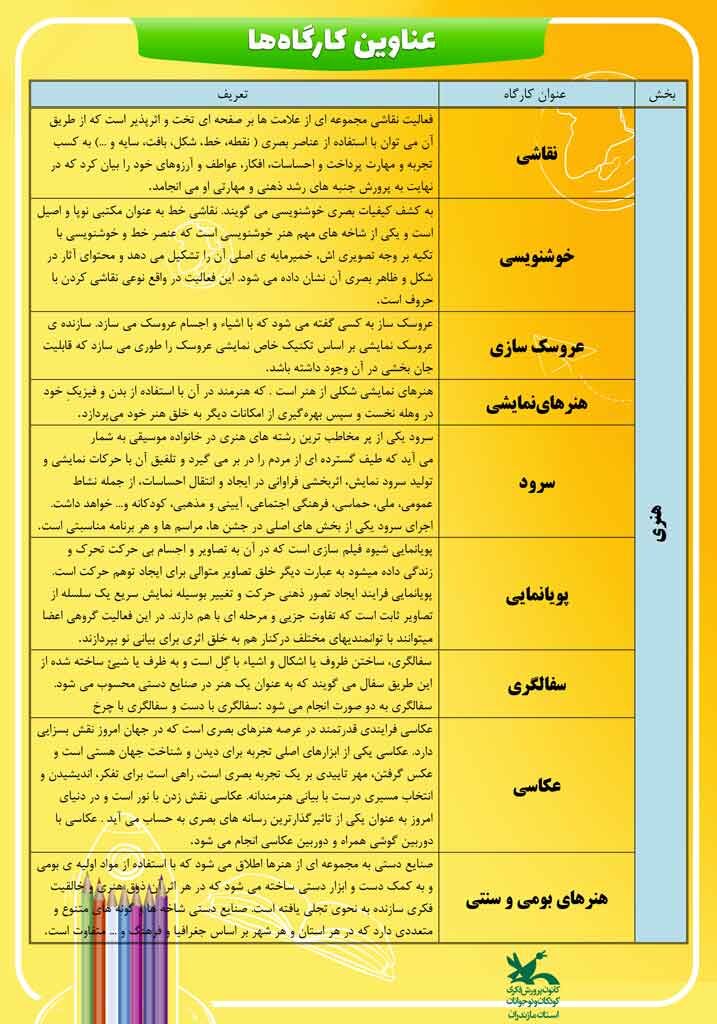 عناوین کارگاه‌ها
بخش
عنوان کارگاه
تعریف
هنری
نقاشی
فعالیت نقاشی مجموعه ای از علامت ها بر صفحه ای تخت و اثرپذیر است که از طریق
آن می توان با استفاده از عناصر بصری ( نقطه، خط، شکل، بافت، سایه و ...) به کسب
تجربه و مهارت پرداخت و احساسات، افکار، عواطف و آرزوهای خود را بیان کرد که در
نهایت به پرورش جنبه های رشد ذهنی و مهارتی او می انجامد.
خوشنویسی
به کشف کیفیات بصری خوشنویسی می گویند. نقاشی خط به عنوان مکتبی نوپا و اصیل
است و یکی از شاخه های مهم هنر خوشنویسی است که عنصر خط و خوشنویسی با
تکیه بر وجه تصویری اش، خمیرمایه ی اصلی آن را تشکیل می دهد و محتوای آثار در
شکل و ظاهر بصری آن نشان داده می شود. این فعالیت در واقع نوعی نقاشی کردن با
حروف است.
عروسک سازی
عروسک ساز به کسی گفته می شود که با اشیاء و اجسام عروسک می سازد. سازنده ی
عروسک نمایشی بر اساس تکنیک خاص نمایشی عروسک را طوری می سازد که قابلیت
جان بخشی در آن وجود داشته باشد.
هنرهای‌نمایشی
هنرهای نمایشی شکلی از هنر است . که هنرمند در آن با استفاده از بدن و فیزیکِ خود
در وهله نخست و سپس بهره‌گیری از امکانات دیگر به خلق هنر خود می‌پردازد.
سرود
سرود یکی از پر مخاطب ترین رشته های هنری در خانواده موسیقی به شمار
می آید که طیف گسترده ای از مردم را در بر می گیرد و تلفیق آن با حرکات نمایشی و
تولید سرود نمایش، اثربخشی فراوانی در ایجاد و انتقال احساسات، از جمله نشاط
عمومی، ملی، حماسی، فرهنگی اجتماعی، آیینی و مذهبی، کودکانه و... خواهد داشت.
اجرای سرود یکی از بخش های اصلی در جشن ها، مراسم ها و هر برنامه مناسبتی است.
پویانمایی
پویانمایی شیوه فیلم سازی است که در آن به تصاویر و اجسام بی حرکت تحرک و
زندگی داده میشود به عبارت دیگر خلق تصاویر متوالی برای ایجاد توهم حرکت است.
پویانمایی فرایند ایجاد تصور ذهنی حرکت و تغییر بوسیله نمایش سریع یک سلسله از
تصاویر ثابت است که تفاوت جزیی و مرحله ای با هم دارند. در این فعالیت گروهی اعضا
میتوانند با توانمندیهای مختلف درکنار هم به خلق اثری برای بیانی نو بپردازند.
سفالگری
سفالگری، ساختن ظروف یا اشکال و اشیاء با گِل است و به ظرف یا شیئ ساخته شده از
این طریق سفال می گویند که به عنوان یک هنر در صنایع دستی محسوب می شود.
سفالگری به دو صورت انجام می شود :سفالگری با دست و سفالگری با چرخ
عکاسی
عکاسی فرایندی قدرتمند در عرصه هنرهای بصری است که در جهان امروز نقش بسزایی
دارد. عکاسی یکی از ابزارهای اصلی تجربه برای دیدن و شناخت جهان هستی است و
عکس گرفتن، مهر تاییدی بر یک تجربه بصری است، راهی است برای تفکر، اندیشیدن و
انتخاب مسیری درست با بیانی هنرمندانه. عکاسی نقش زدن با نور است و در دنیای
امروز به عنوان یکی از تاثیرگذارترین رسانه های بصری به حساب می آید . عکاسی با
دوربین گوشی همراه و دوربین عکاسی انجام می شود.
هنرهای بومی و سنتی
صنایع دستی به مجموعه ای از هنرها اطلاق می شود که با استفاده از مواد اولیه ی بومی
و به کمک دست و ابزار دستی ساخته می شود که در هر اثر آن ذوق هنری و خالقیت
فکری سازنده به نحوی تجلی یافته است. صنایع دستی شاخه ها و گونه های متنوع و
متعددی دارد که در هر استان و هر شهر بر اساس جغرافیا و فرهنگ و ... متفاوت است.
کانون پرورش فکری
کودکان و نوجوانان
استان مازندران